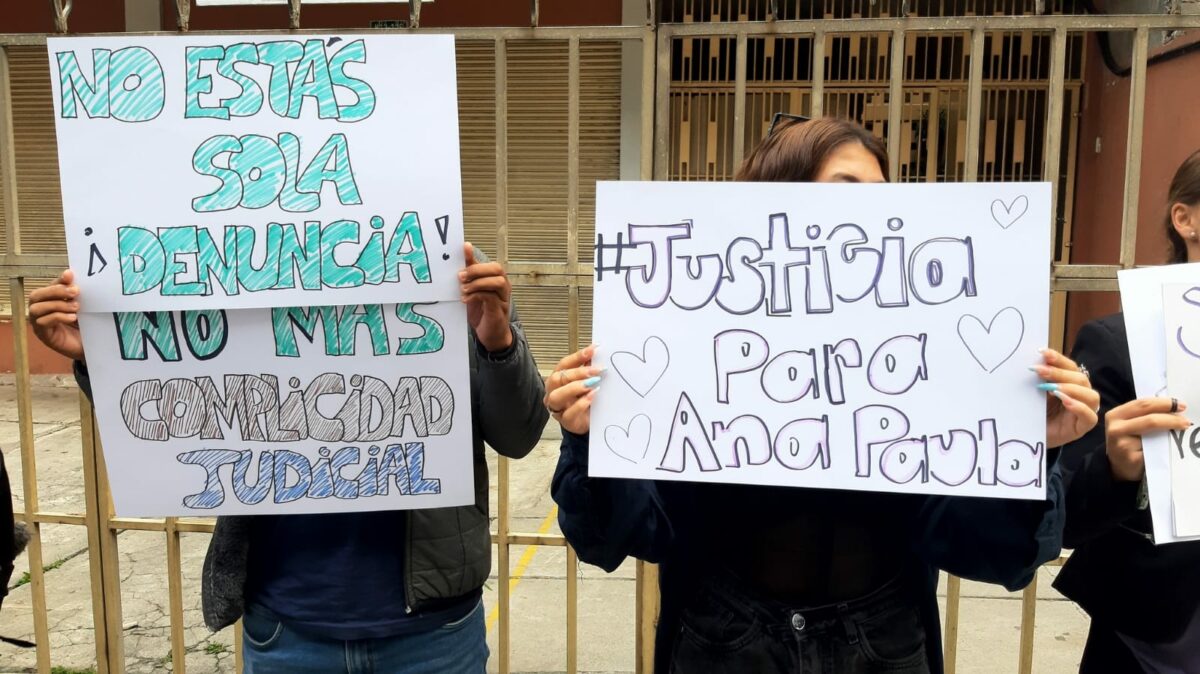 NO ESTÁS
SOLA
¡DENUNCIA!
NO MÁS
COMPLICIDAD
JUDICIAL
#Justicia
Para
Ana Paula